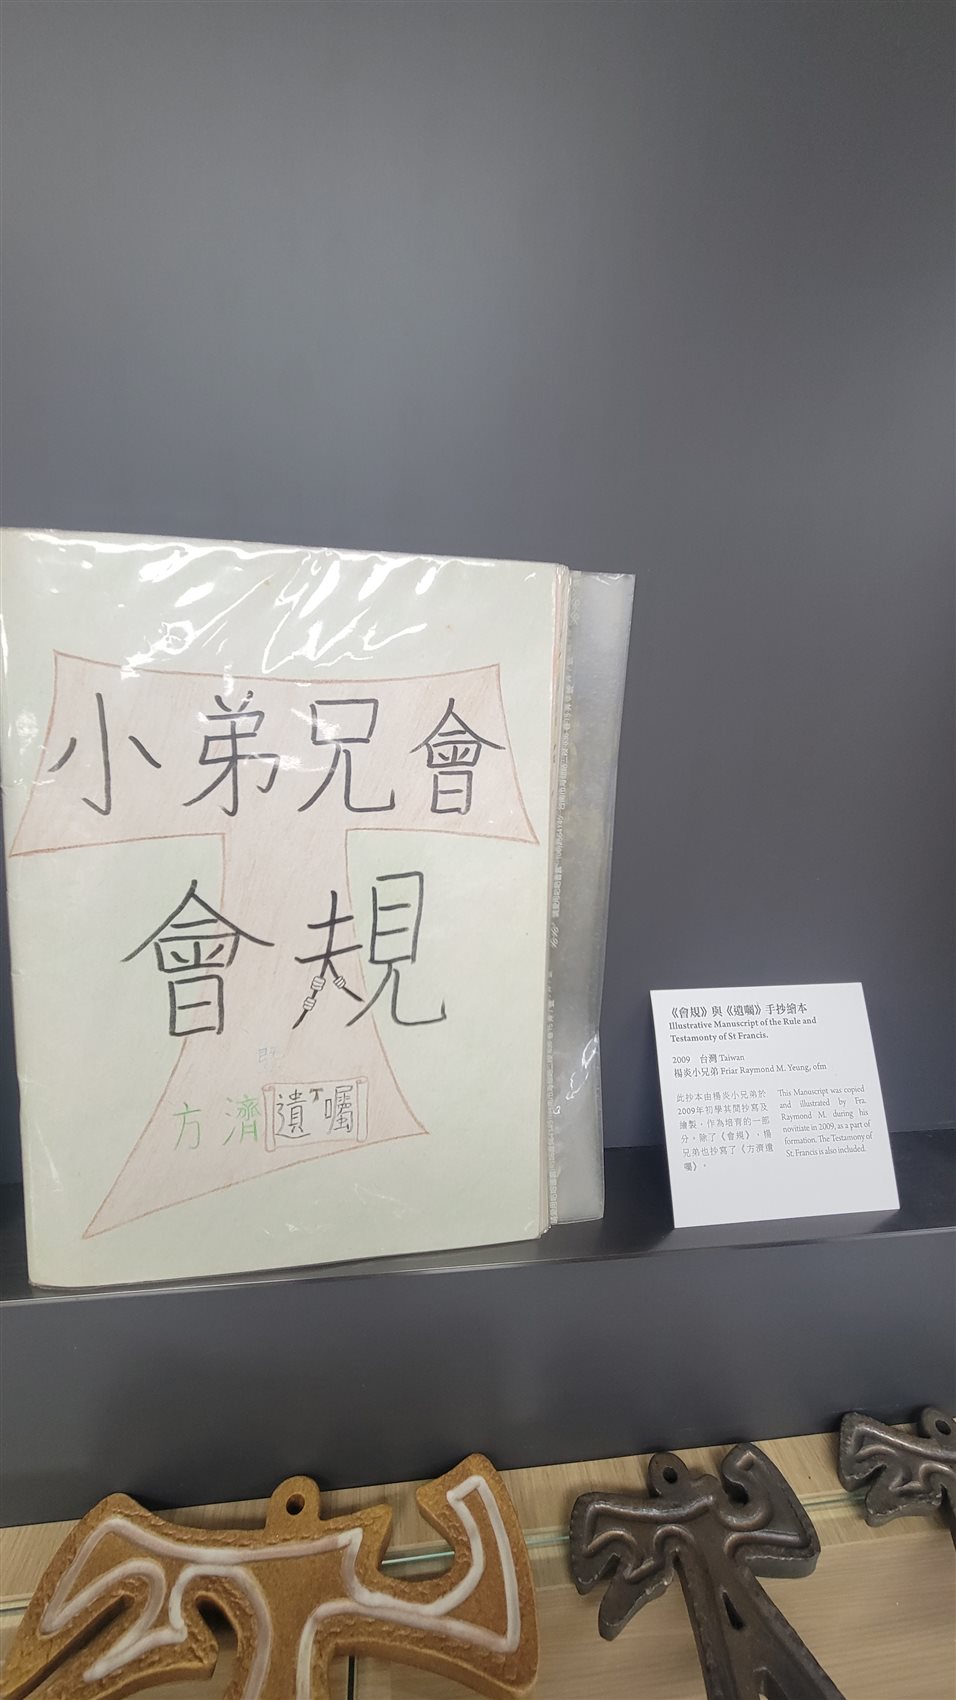 小弟兄會
會規
即
方濟遺囑
《會規》與《遺囑》手抄繪本
Illustrative Manuscript of the Rule and
Testamonty of St Francis.
2009 台灣 Taiwan
楊炎小兄弟 Friar Raymond M. Yeung, ofm
此抄本由楊炎小兄弟於
2009年初學其間抄寫及
繪製，作為培育的一部
分，除了《會規》、楊
兄弟也抄寫了《方濟遺
囑》。
This Manuscript was copied
and illustrated by Fra.
Raymond M. during his
novitiate in 2009, as a part of
formation. The Testamony of
St. Francis is also included.